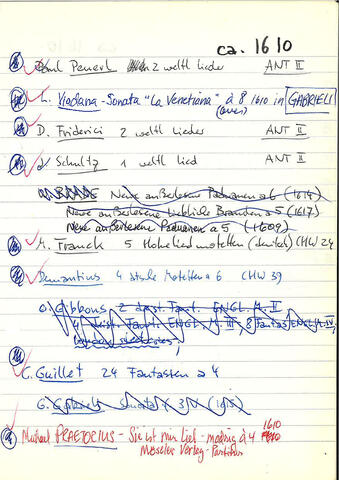 ca. 1610
Paul Peuerl 2 weltl Lieder ANT II
L. Viadana - Sonata "La Venetiana" à 8 1610 in GABRIELI
D. Friderici 2 weltl Lieder ANT II
J. Schultz 1 weltl Lied ANT II
Neue außerlesene Paduanen à 6 (1614)
Neue außerlesene liebliche Branden à 5 (1617)
Neue außerlesene Paduanen à 5 (1609)
M. Franck 5 Hoheliedmotetten (deutsch) CHW 24
Demantius 4 Motetten à 6 CHW 39
O. Gibbons 2 Fant. ENGL. M. II
4 Fant. ENGL. M. III, 8 Fantas ENGL M. IV,
C. Guillet 24 Fantasien à 4
G. Gabrieli Sonata X 3 V (1615)
Michael PRAETORIUS - Sie ist mir lieb - madrig à 4 1610
Möseler Verlag - Partitur